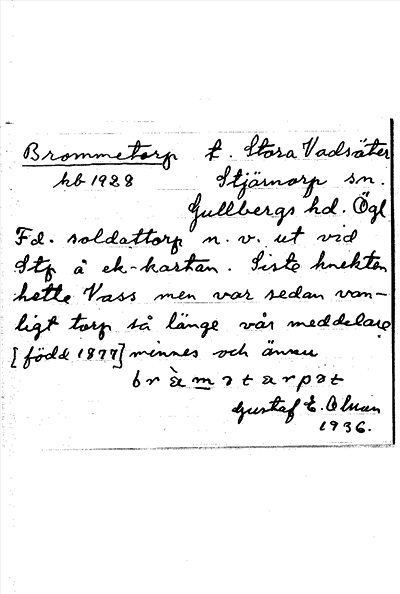 Brommetorp t. Stora Vadsäter
hb 1928 Stjärnorp sn.
Gullbergs hd. Ögl
Fd. soldattorp n. v. ut vid
Stp å ek-kartan. Siste knekten
hette Vass men var sedan van-
ligt torp så länge vår meddelare
[född 1877] minnes och ännu
brὰmɘtarpɘt
Gustaf E. Olsson
1936.